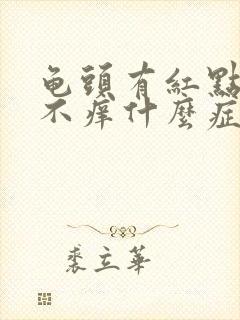 龟頭有紅點
不痒什麼症
裘立華